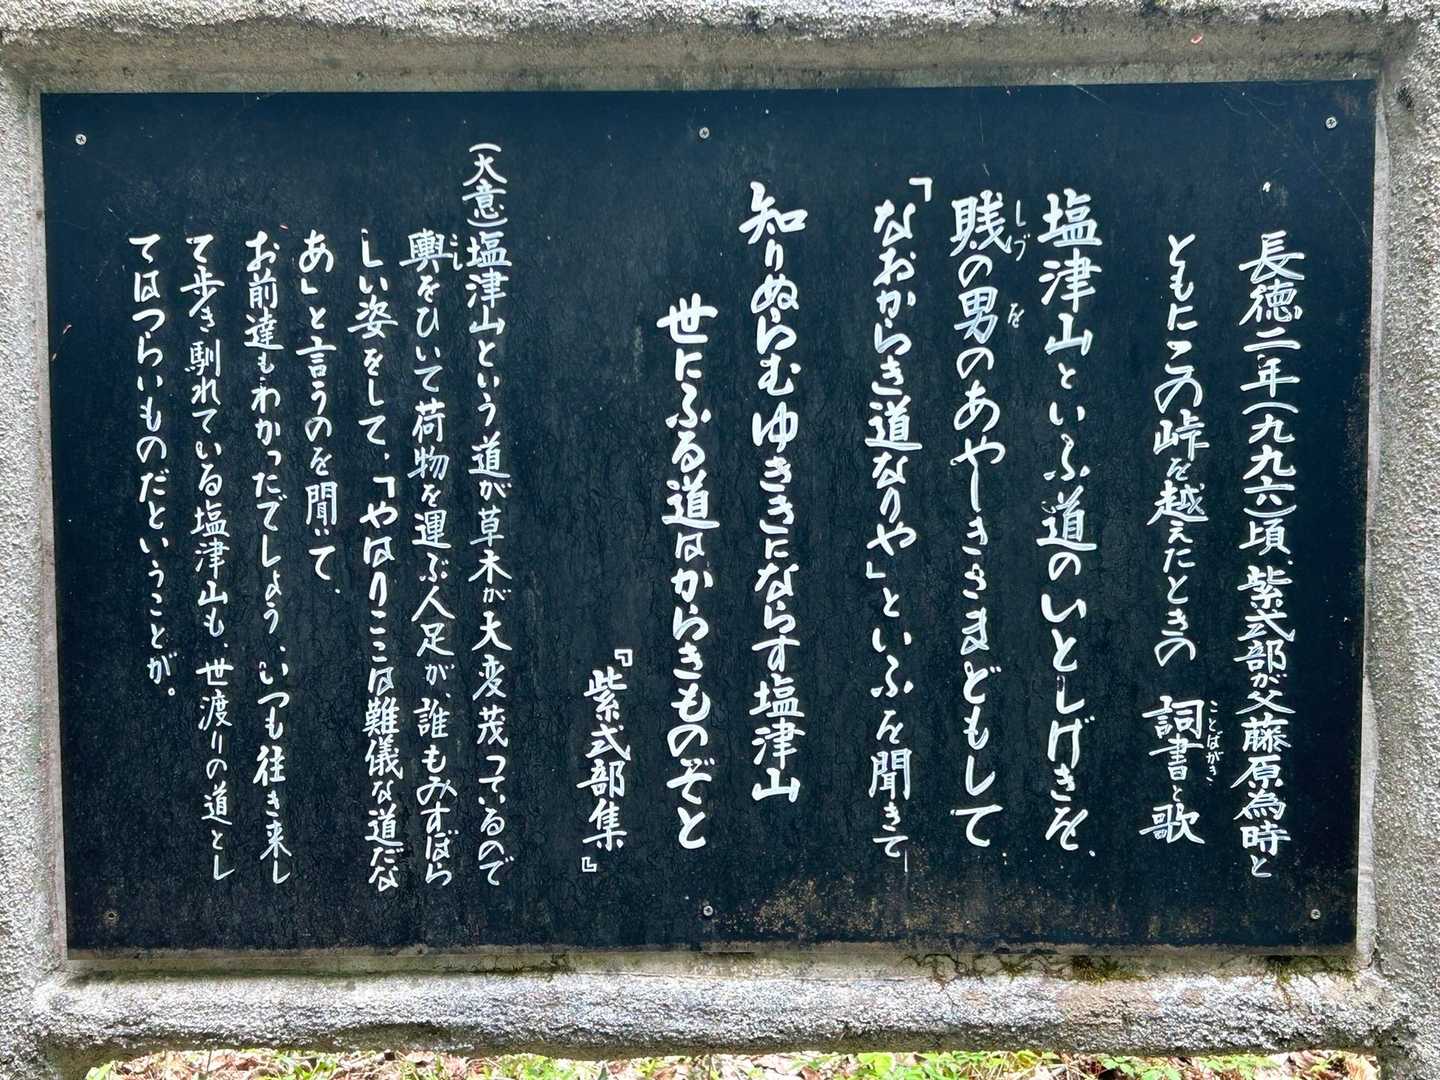 長徳二年(九九六)頃、紫式部が父藤原為時と
ともにこの峠を越えたときの 詞書と歌
ことばがき
塩津山といふ道のいとしげきを、
賎の男のあやしきさまどもして
しづ を
「なおからき道なりや」といふを聞きて、
知りぬらむゆききにならす塩津山
世にふる道はからきものぞと
『紫式部集』
(大意)塩津山という道が草木が大変茂っているので
輿をひいて荷物を運ぶ人足が、誰もみすぼら
こし
しい姿をして、「やはりここは難儀な道だな
あ」と言うのを聞いて、
お前達もわかったでしょう、いつも往き来し
て歩き馴れている塩津山も、世渡りの道とし
てはつらいものだということが。